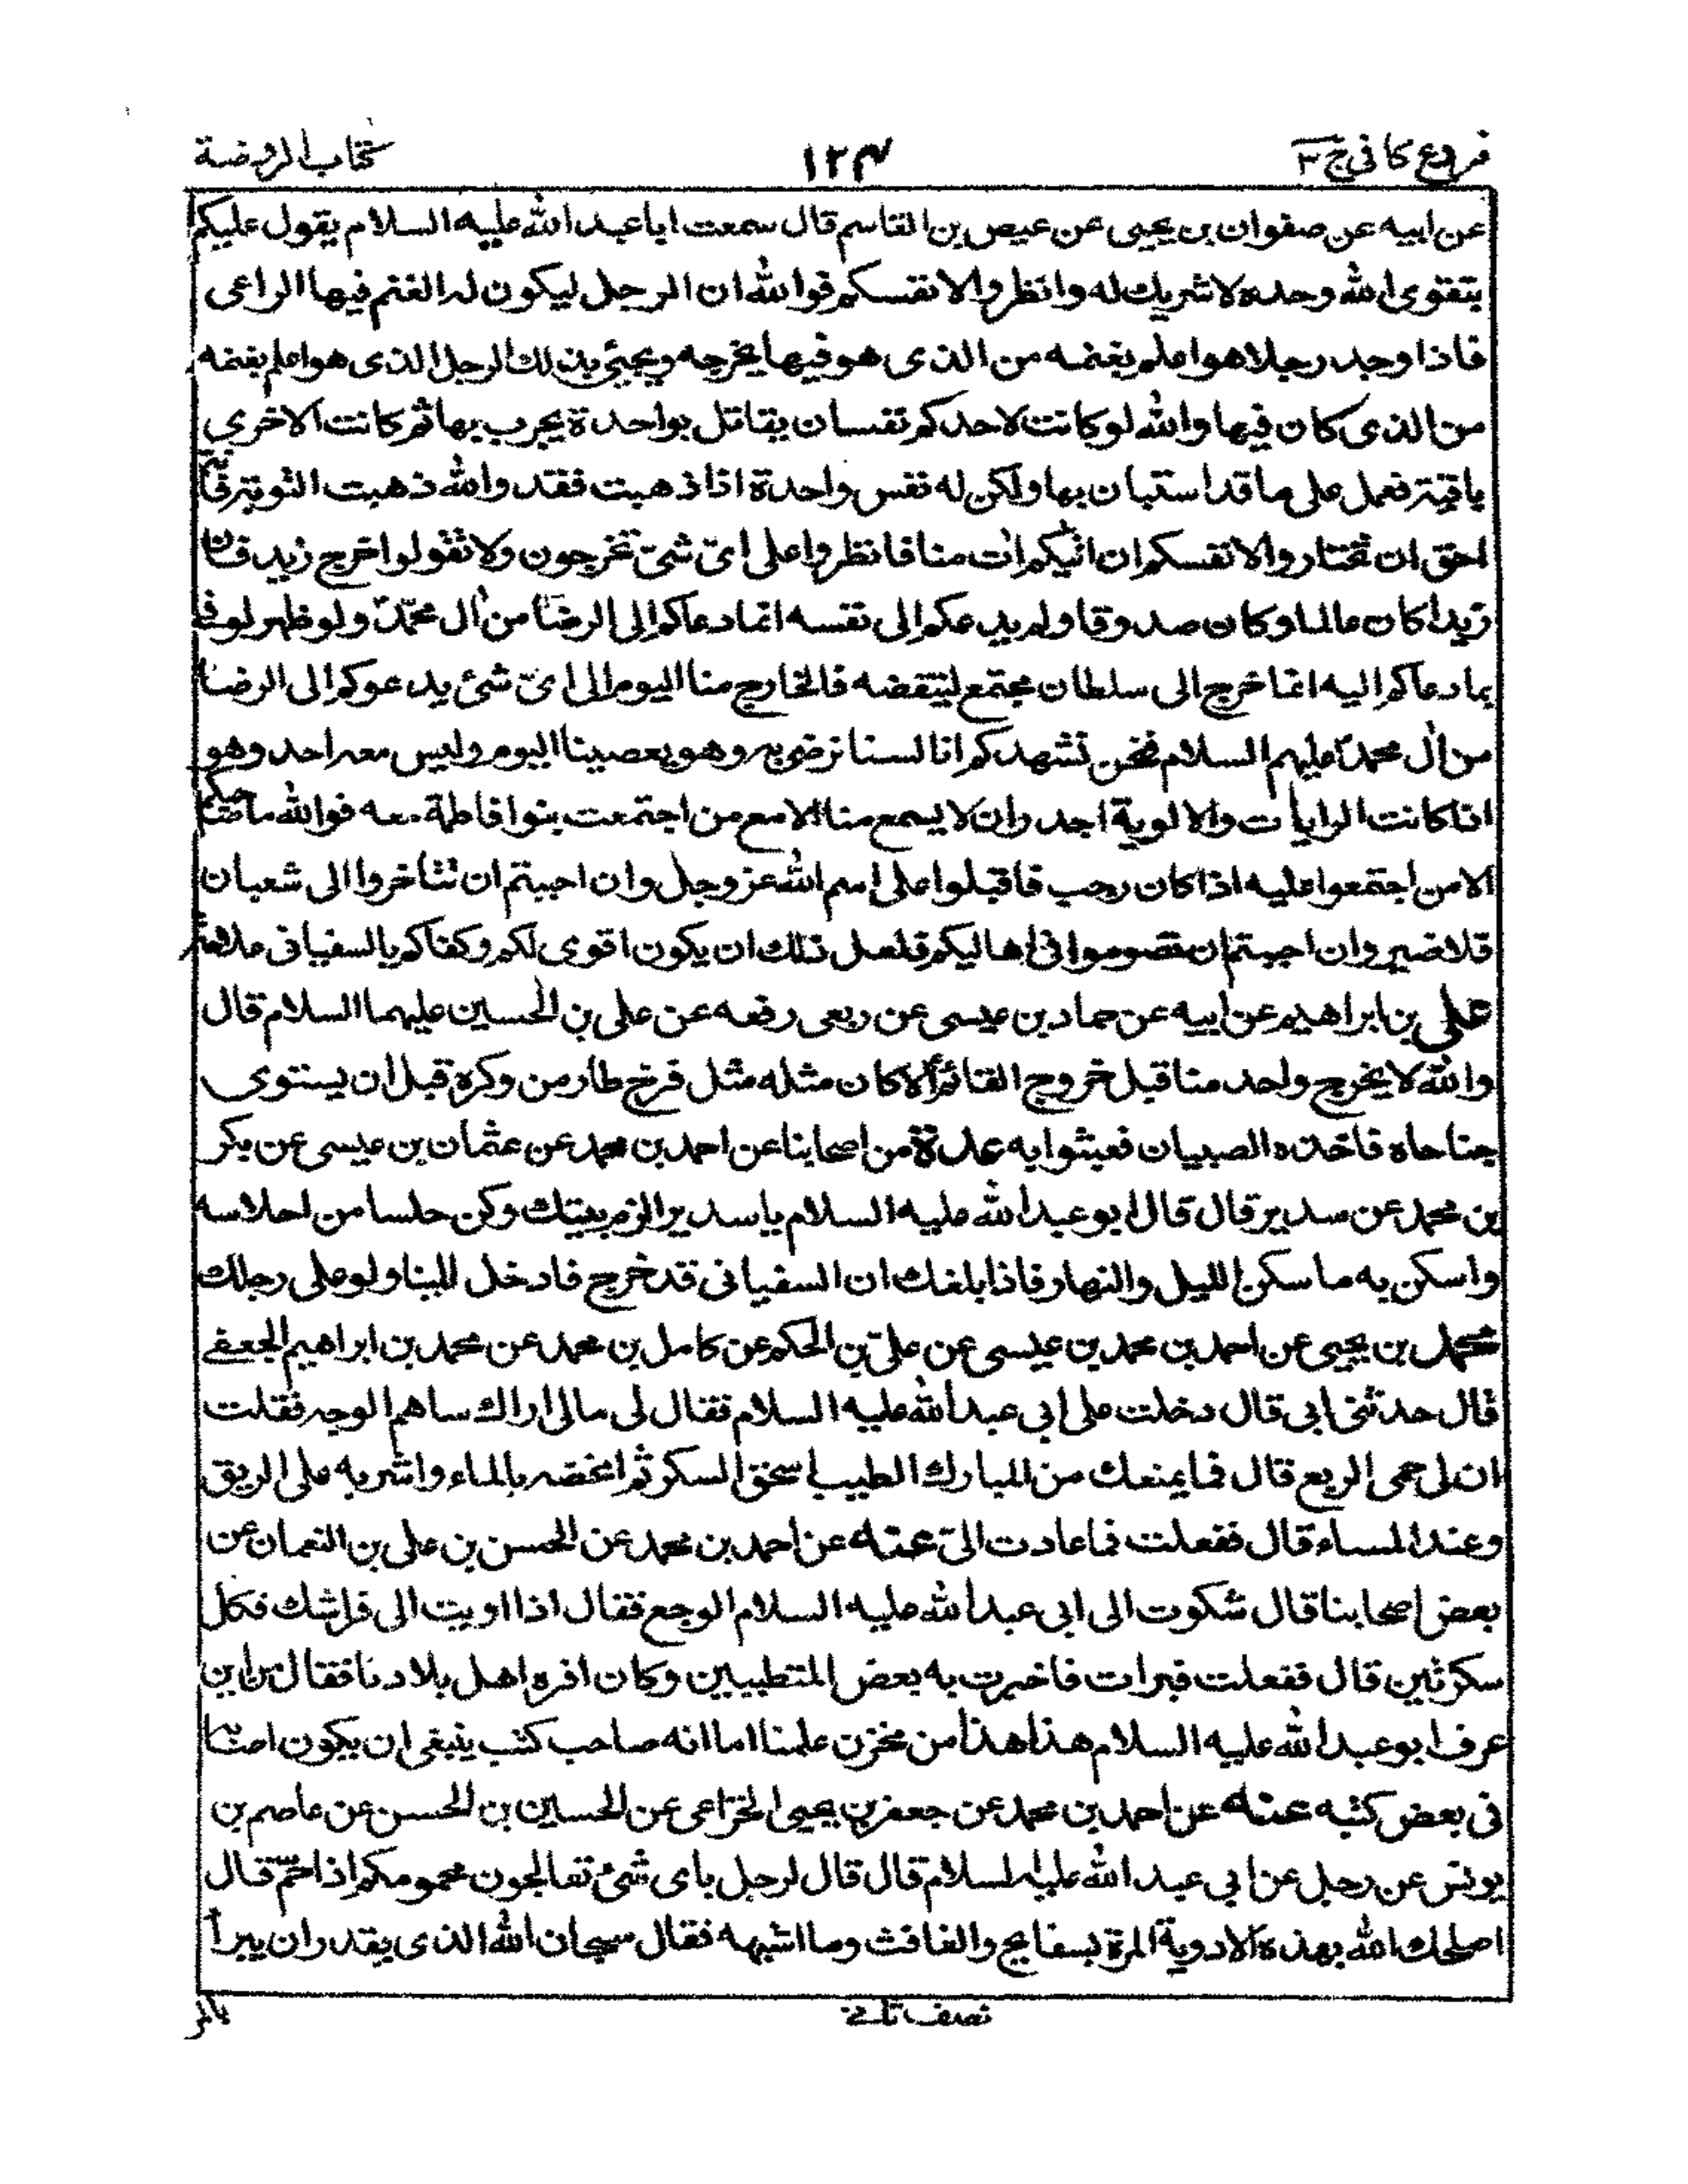 فروع کافی ج ۳
۱۲۴
کتاب الروضة
عن ابیه عن صفوان بن یحیی عن عیص بن القاسم قال سمعت ابا عبد الله علیه السلام یقول علیکم
بتقوی الله وحده لا شریك له وانظروا لانفسکم فوالله ان الرجل لیکون له الغنم فیها الراعی
فاذا وجد رجلا هو اعلم بغنمه من الذی هو فیها یخرجه ویجیئ بذلك الرجل الذی هو اعلم بغنمه
من الذی کان فیها والله لو کانت لاحدکم نفسان یقاتل بواحدة یجرب بها ثم کانت الاخری
باقیة فعمل علی ما قد استبان بها ولکن له نفس واحدة اذا ذهبت فقد والله ذهبت التوبة فانتم
احق ان تختاروا لانفسکم ان اتیکم ات منا فانظروا علی ای شئ تخرجون ولا تقولوا خرج زید فان
زیدا کان عالما وکان صدوقا ولم یدعکم الی نفسه انما دعاکم الی الرضا من ال محمد ولو ظهر لوفی
بما دعاکم الیه انما خرج الی سلطان مجتمع لینقضه فالخارج منا الیوم الی ای شئ یدعوکم الی الرضا
من ال محمد علیهم السلام فنحن نشهدکم انا لسنا نرضی به وهو یعصینا الیوم ولیس معه احد وهو
اذا کانت الرایات والالویة اجدر ان لا یسمع منا الا مع من اجتمعت بنوا فاطمة معه فوالله ما صاحبکم
الا من اجتمعوا علیه اذا کان رجب فاقبلوا علی اسم الله عز وجل وان احببتم ان تتاخروا الی شعبان
فلا ضیر وان احببتم ان تصوموا فی اهالیکم فلعل ذلك ان یکون اقوی لکم وکفاکم بالسفیانی علامة
علی بن ابراهیم عن ابیه عن حماد بن عیسی عن ربعی رفعه عن علی بن الحسین علیهما السلام قال
والله لا یخرج واحد منا قبل خروج القائم الا کان مثله مثل فرخ طار من وکره قبل ان یستوی
جناحاه فاخذه الصبیان فعبثوا به عدة من اصحابنا عن احمد بن محمد عن عثمان بن عیسی عن بکر
بن محمد عن سدیر قال قال ابو عبد الله علیه السلام یا سدیر الزم بیتك وکن حلسا من احلاسه
واسکن به ما سکن اللیل والنهار فاذا بلغك ان السفیانی قد خرج فادخل الینا ولو علی رجلك
محمد بن یحیی عن احمد بن محمد بن عیسی عن علی بن الحکم عن کامل بن محمد عن محمد بن ابراهیم الجعفی
قال حدثنی ابی قال دخلت علی ابی عبد الله علیه السلام فقال لی مالی اراك ساهم الوجه فقلت
ان لی حمی الربع قال فما یمنعك من المبارك الطیب اسحق السکر ثم امخضه بالماء واشربه علی الریق
وعند المساء قال ففعلت فما عادت الی عنه عن احمد بن محمد عن الحسن بن علی بن النعمان عن
بعض اصحابنا قال شکوت الی ابی عبد الله علیه السلام الوجع فقال اذا اویت الی فراشك فکل
سکرتین قال ففعلت فبرات فاخبرت به بعض المتطببین وکان افره اهل بلادنا فقال من این
عرف ابو عبد الله علیه السلام هذا هذا من مخزن علمنا اما انه صاحب کتب ینبغی ان یکون اصابه
فی بعض کتبه عنه عن احمد بن محمد عن جعفر بن یحیی الخزاعی عن الحسین بن الحسن عن عاصم بن
یونس عن رجل عن ابی عبد الله علیه السلام قال قال لرجل بای شئ تعالجون محمومکم اذا حم قال
اصلحك الله بهذه الادویة المرة بسفایج والغافث وما اشبهه فقال سبحان الله الذی یقدر ان یبرأ
نصف ثانی
بالمر